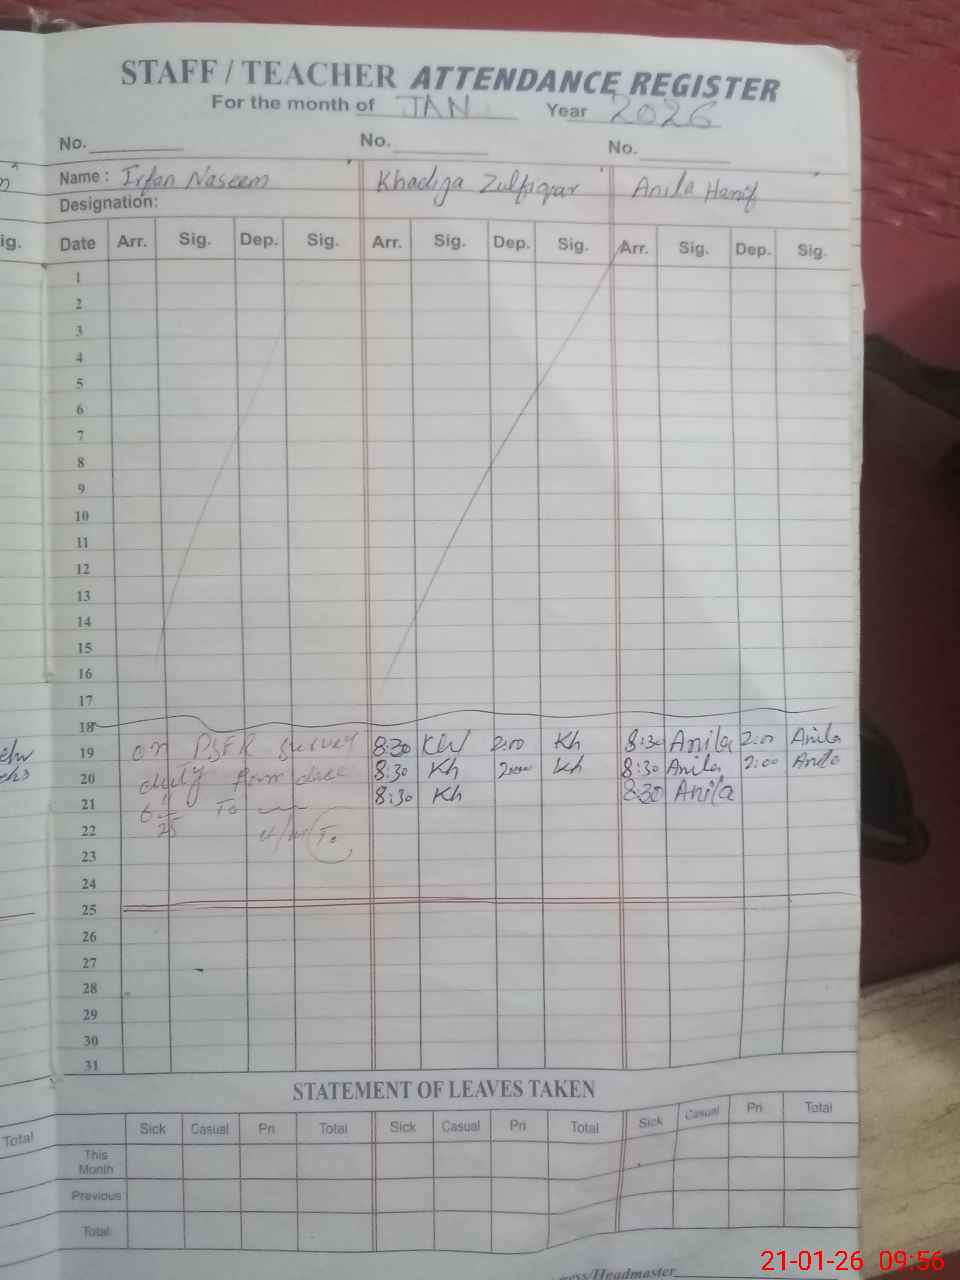 STAFF / TEACHER ATTENDANCE REGISTER
For the month of JAN Year 2026
No. No. No.
Name : Irfan Naseem Khadija Zulfiqar Anila Hanif
Designation:
ig. Date Arr. Sig. Dep. Sig. Arr. Sig. Dep. Sig. Arr. Sig. Dep. Sig.
1
2
3
4
5
6
7
8
9
10
11
12
13
14
15
16
17
18
19 on survey 8:30 Kh 2:00 Kh 8:30 Anila 2:00 Anila
20 duty 8:30 Kh 2:00 Kh 8:30 Anila 2:00 Anila
21 To 8:30 Kh 8:30 Anila
22 To
23
24
25
26
27
28
29
30
31
STATEMENT OF LEAVES TAKEN
Total Sick Casual Pri Total Sick Casual Pri Total Sick Casual Pri Total
This Month
Previous
Total
ess/Headmaster
21-01-26 09:56